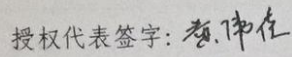 授权代表签字: